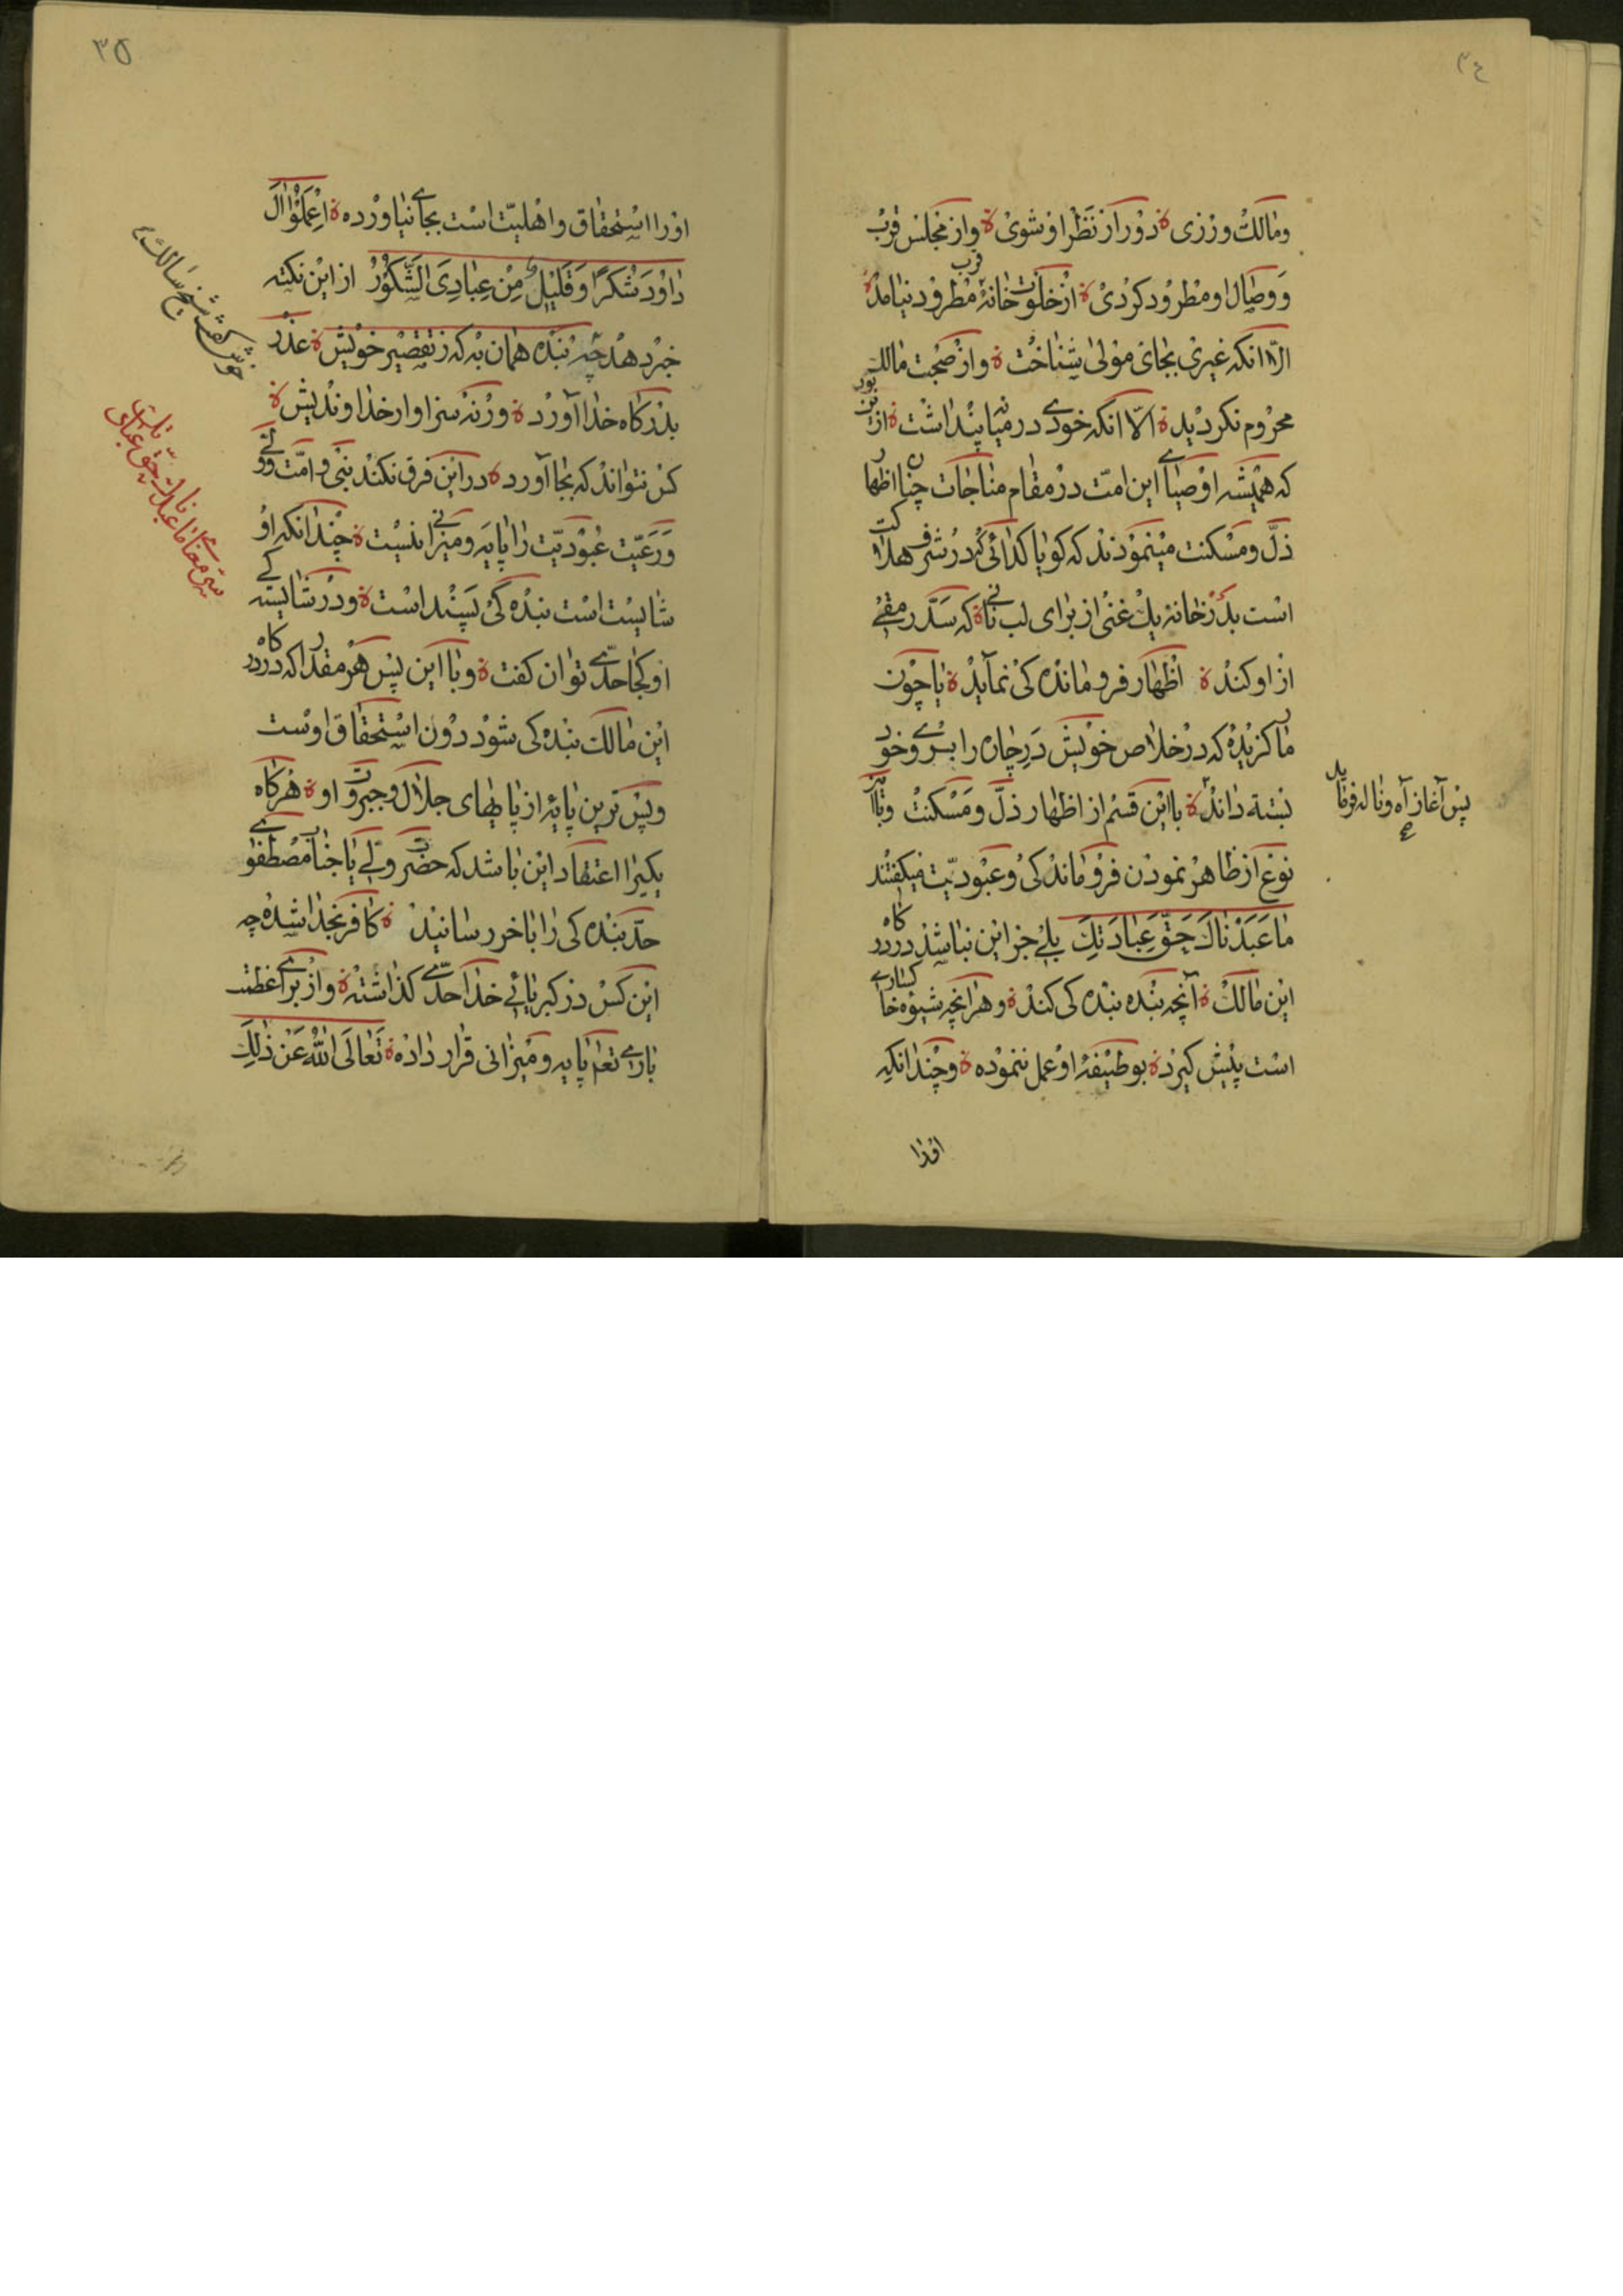 ٣٤
ومالك ورزی ۀ دور از نظر او شوی ۀ واز مجلس قرب
و وصال او مطرود کردی ۀ از خلوت خانۀ قرب مطرود نیامد ۀ
الا انکه غیری بجای مولی شناخت ۀ واز صحبت مالك
محروم نکردید ۀ الا انکه خودی در میانه پنداشت ۀ از این بود
که همیشه اوصیای این امت در مقام مناجات چنان اظهار
ذل و مسکنت مینمودند که کویا کدائی که در شرف هلاکت
است بدر خانه یك غنی از برای لب نانی ۀ که سد رمقی
از او کند ۀ اظهار فرومانده کی نماید ۀ یا چون
مار کزیده که در خلاص خویش در چاره را بروی خود
بسته داند ۀ با این قسم از اظهار ذل و مسکنت وبا این
نوع از ظاهر نمودن فروماندکی و عبودیت میکفتند
ما عبدناك حق عبادتك بلی جز این نباشد در درکاه
این مالك ۀ آنچه بنده بنده کی کند ۀ وهر انچه شیوه خاکساری
است پیش کیرد ۀ بوظیفۀ او عمل ننموده ۀ وچندانکه
اورا
پس آغاز آه و ناله فرماید
٣٥
اورا استحقاق و اهلیت است بجای نیاورده ۀ اعملوا ال
داود شکرا وقلیل من عبادی الشکور از این نکته
خبر دهد چه بنده همان به که ز تقصیر خویش ۀ عذر
بدرکاه خدا آورد ۀ ورنه سزاوار خداوندیش ۀ
کس نتواند که بجا آورد ۀ در این فرق نکند نبی و امت ولی
ورعیت عبودیت را پایه و میزانی نیست ۀ چندانکه او
شایست است بنده کی پسند است ۀ ودر شایسته کی
او کجا حدی توان کفت ۀ وبا این پس هر مقدار که در درکاه
این مالك بنده کی شود دون استحقاق اوست
وپس ترین پایه از پایهای جلال وجبروت او ۀ هرکاه
یکیرا اعتقاد این باشد که حضرت ولی یا جناب مصطفوی
حد بنده کی را باخر رسانید ۀ کافر بخدا شده چه
این کس در کبریائی خدا حدی کذاشته ۀ واز برای عظمت
باری تعم پایه و میزانی قرار داده ۀ تعالی الله عن ذلك
خوش کفت شیخ سالك